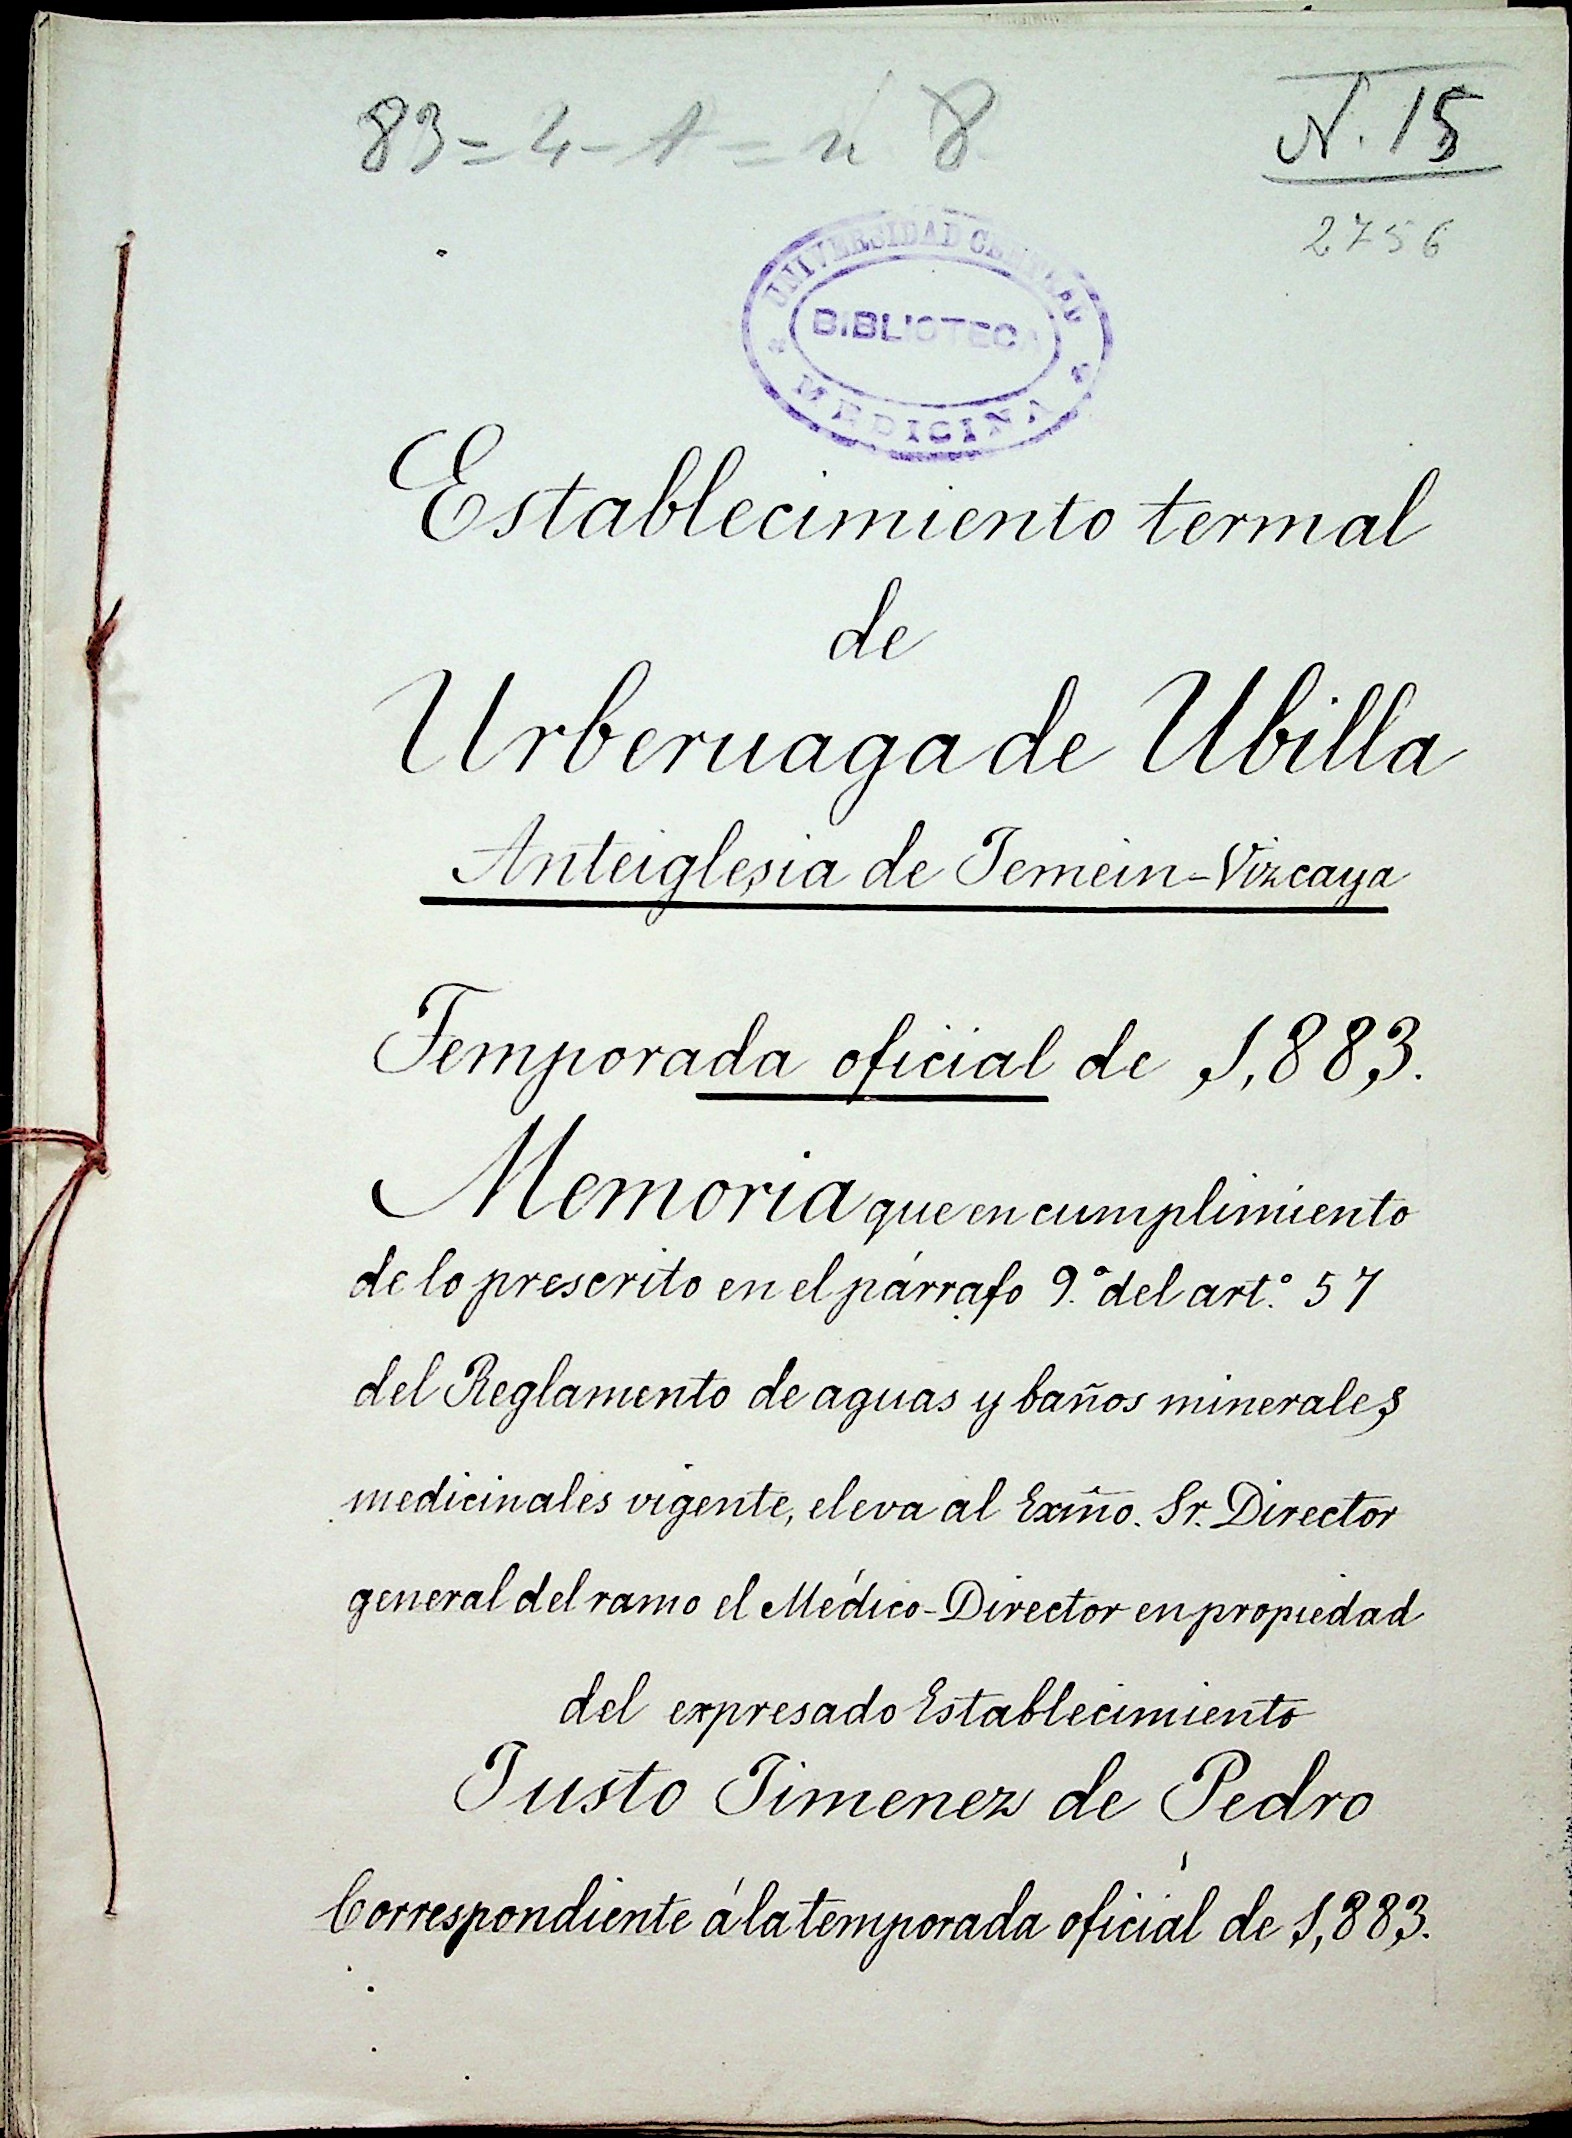 83=4-1=n 8
N. 15
2756
UNIVERSIDAD CENTRAL
BIBLIOTECA
MEDICINA
Establecimiento termal
de
Urberuaga de Ubilla
Anteiglesia de Jemein-Vizcaya
Temporada oficial de 1,883.
Memoria que en cumplimiento
de lo prescrito en el párrafo 9.º del art.º 57
del Reglamento de aguas y baños minerales
medicinales vigente, eleva al Exmo. Sr. Director
general del ramo el Médico-Director en propiedad
del expresado Establecimiento
Justo Jimenez de Pedro
Correspondiente á la temporada oficial de 1,883.